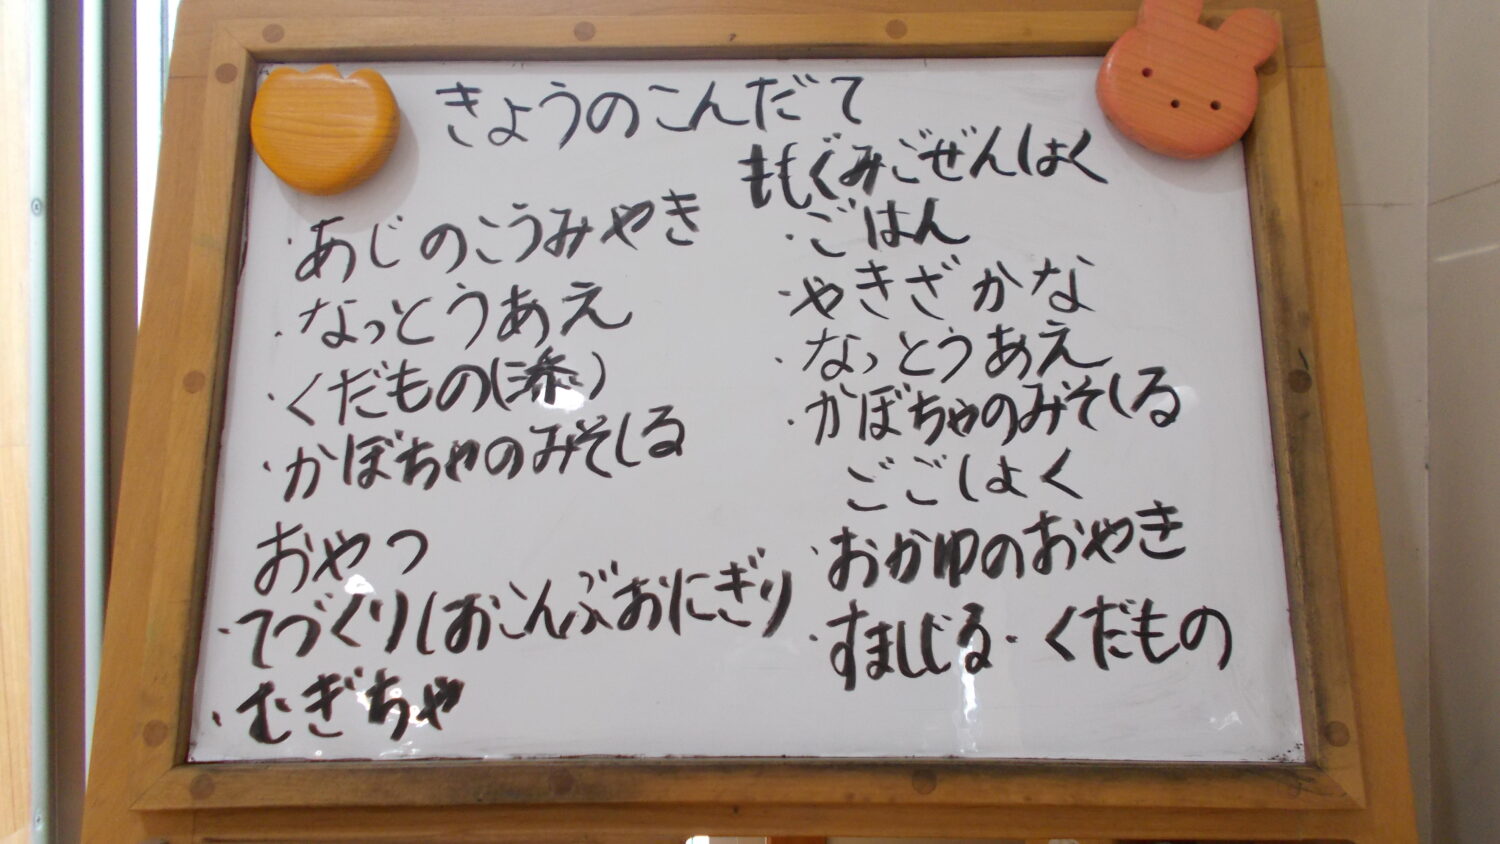 きょうのこんだて
・あじのこうみやき
・なっとうあえ
・くだもの(添)
・かぼちゃのみそしる
おやつ
・てづくりしおこんぶおにぎり
・むぎちゃ
ももぐみごぜんしょく
・ごはん
・やきざかな
・なっとうあえ
・かぼちゃのみそしる
ごごしょく
・おかゆのおやき
・すましじる・くだもの